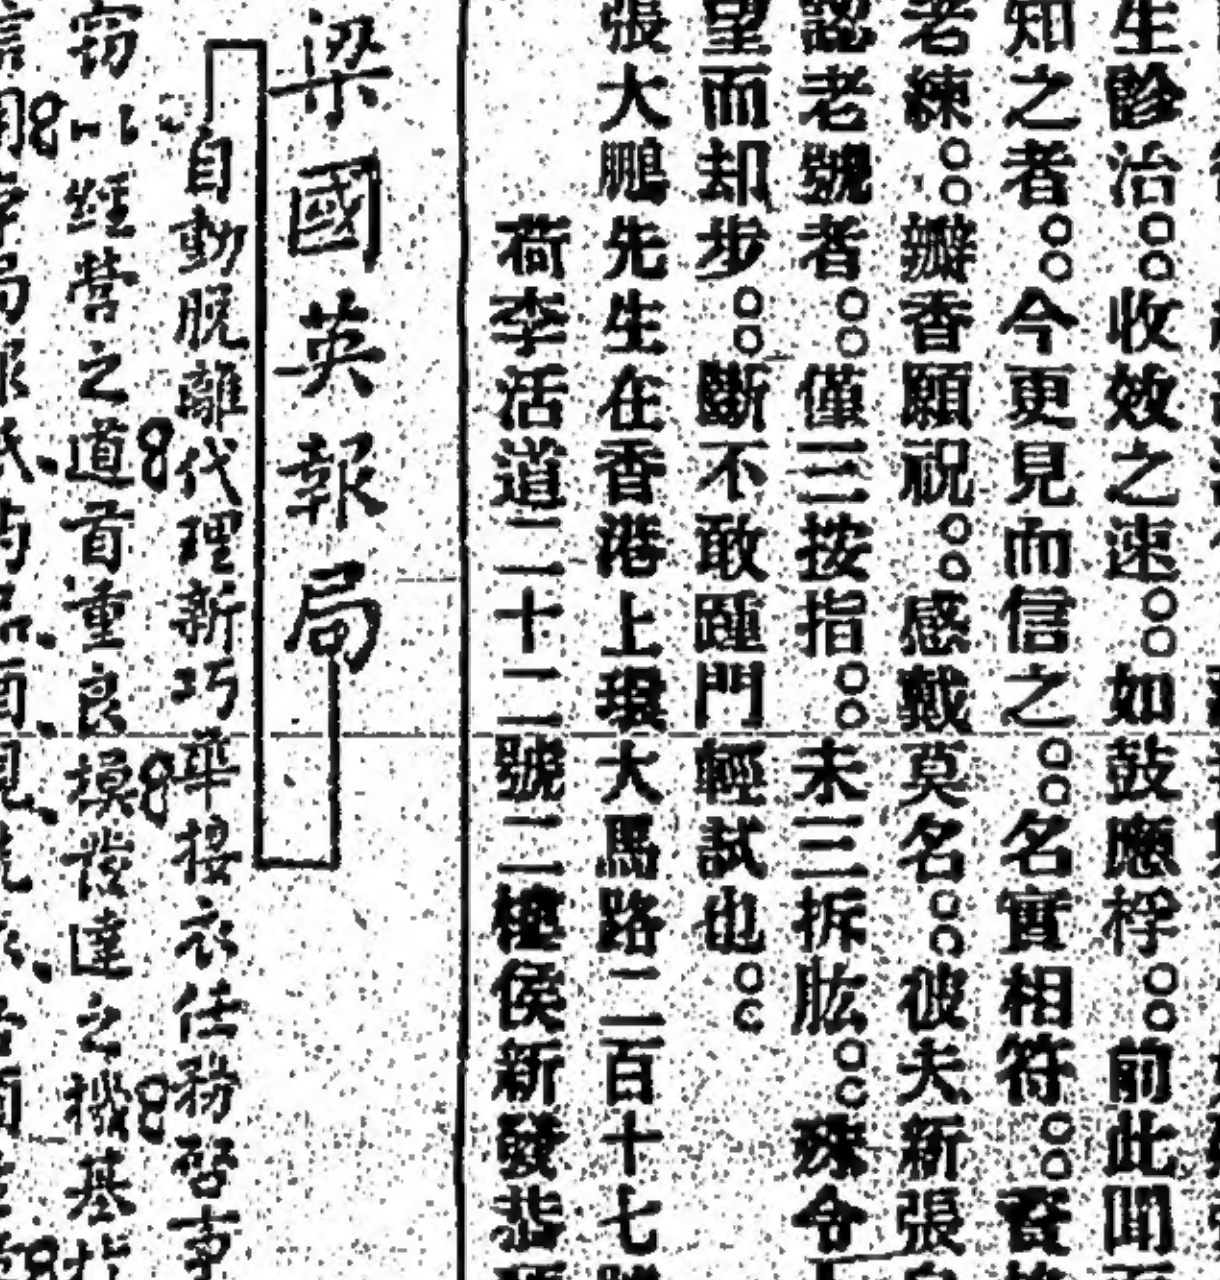 生診治。。收效之速。。如鼓應桴。。前此聞
知之者。。今更見而信之。。名實相符。。
老練。。瓣香願祝。。感戴莫名。。彼夫新張
認老號者。。僅三按指。。未三折肱。。殊令
望而却步。。斷不敢踵門輕試也。。
張大鵬先生在香港上環大馬路二百十七
荷李活道二十二號二樓侯新發恭
梁國英報局
自動脫離代理新巧華捷衣任務啓事
窃以經營之道首重良模發達之機基於